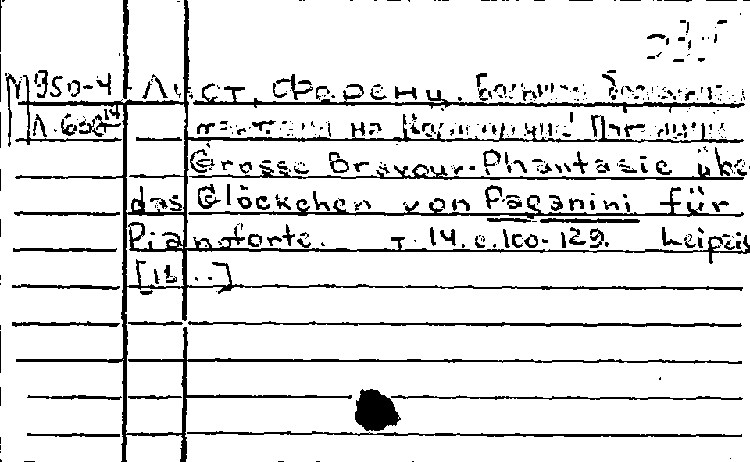 М950-4 Лист, Ференц. Большая бравурная
Л. 638 14 фантазия на "Колокольчик" Паганини
Grosse Bravour-Phantasie übe
das Glöckchen von Paganini für
Pianoforte. т. 14. с. 100-129. Leipzig
[18..]